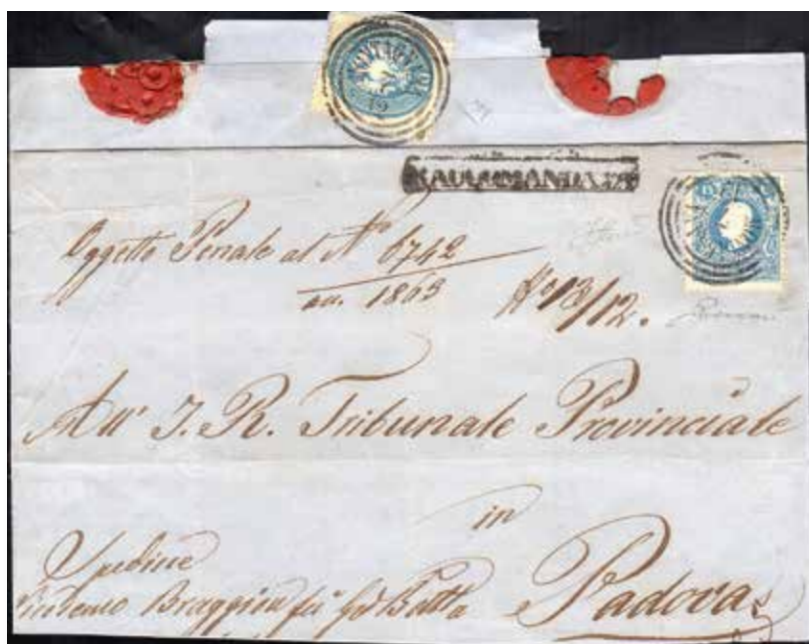 MONTAGNANA
RACCOMANDATA
Oggetto Penale al N° 6742
au. 1863
N° 13/12.
All' I. R. Tribunale Provinciale
in
Padova
Spedisce
Braggion fu Gio Batta